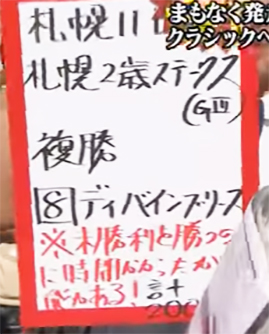 まもなく発
クラシックへ
札幌11
札幌2歳ステークス
(GⅢ)
複勝
8 ディバインブリーズ
※未勝利を勝つの
に時間かかったが
がある！
計
200